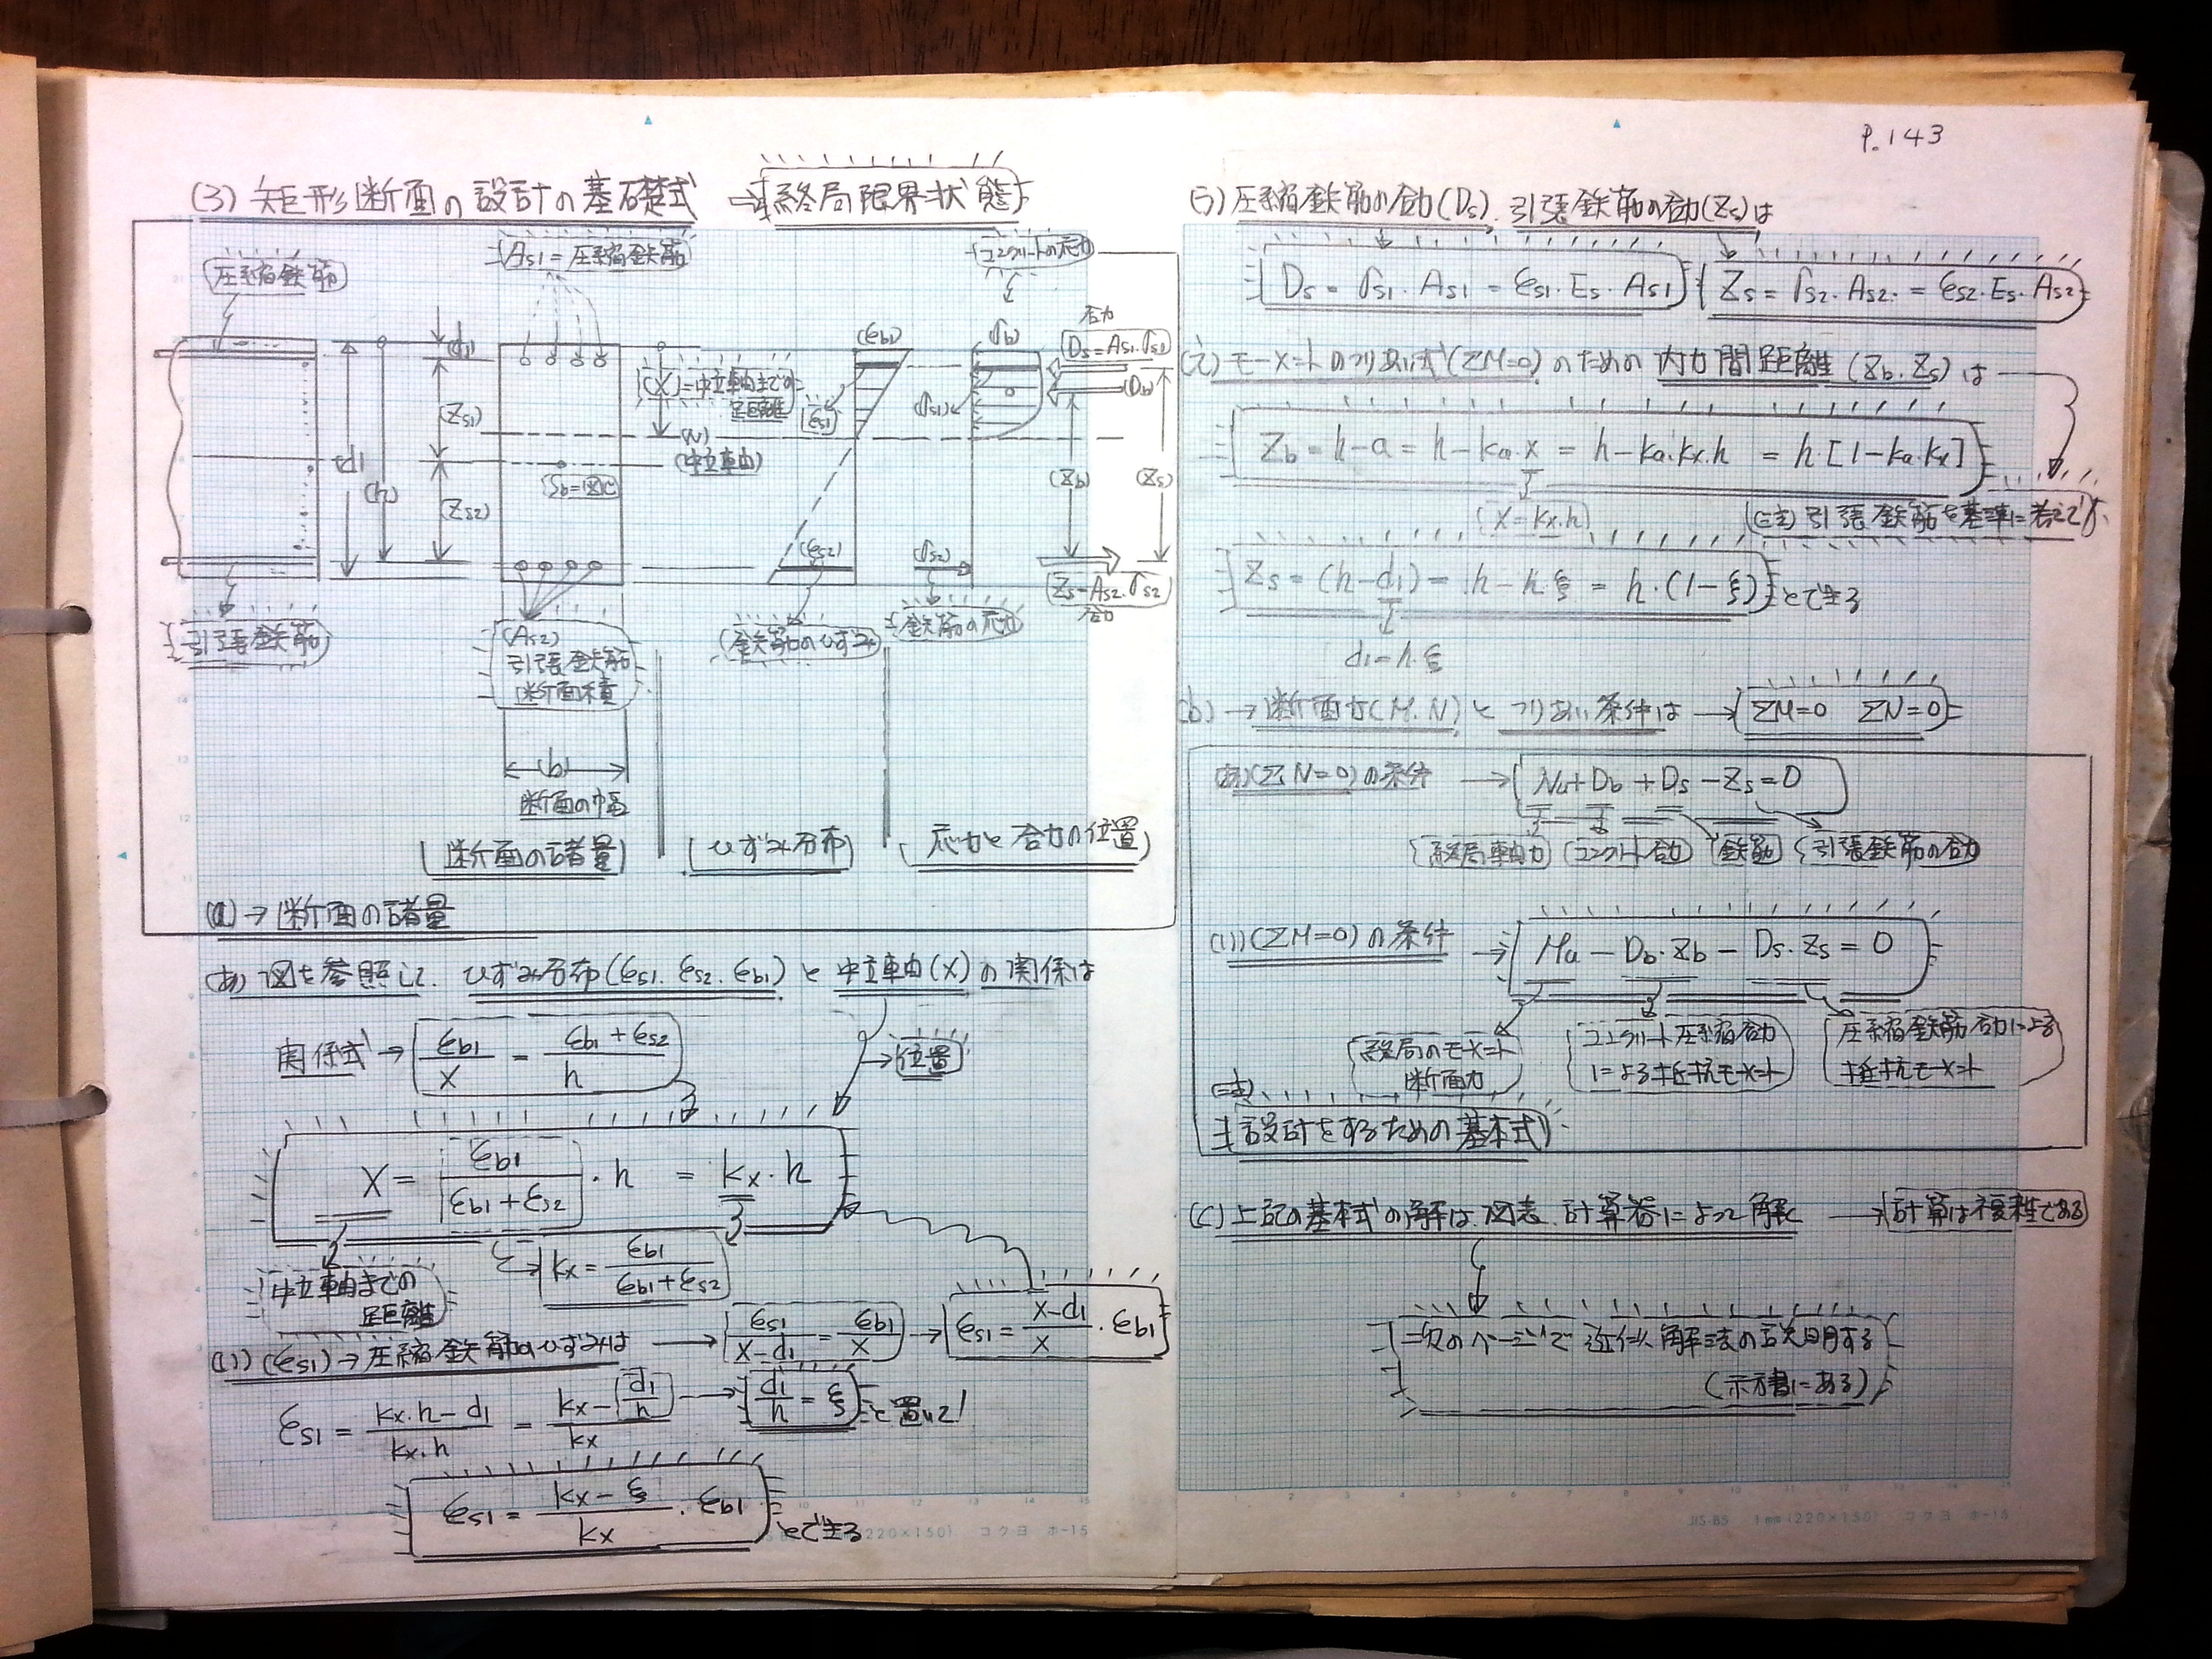 P.143
(3) 矩形断面の設計の基礎式 → 終局限界状態
圧縮鉄筋
As1=圧縮鉄筋
コンクリートの応力
(d1)
(Zs1)
(Zs2)
(d)
(h)
(X)=中立軸までの
距離
(N)
(中立軸)
(Sb=図心)
(εb1)
(εs1)
(εs2)
(σb)
(σs1)
(σs2)
合力
(Ds=As1・σs1)
(Db)
(Zb)
(Zs)
(Zs=As2・σs2)
合力
引張鉄筋
(As2)
引張鉄筋
断面積
(鉄筋のひずみ)
鉄筋の応力
(b)
断面の幅
断面の諸量
ひずみ分布
応力と合力の位置
(a)→断面の諸量
(あ) 図を参照して、ひずみ分布(εs1. εs2. εb1)と中立軸(X)の関係は
関係式→ εb1/X = (εb1+εs2)/h
位置
X = εb1/(εb1+εs2)・h = kx・h
中立軸までの
距離
kx = εb1/(εb1+εs2)
(い) (εs1)→圧縮鉄筋のひずみは → εs1/(X-d1) = εb1/X → εs1 = (X-d1)/X・εb1
εs1 = (kx・h-d1)/(kx・h) = (kx-(d1/h))/kx → d1/h = ξ と置いて
εs1 = (kx-ξ)/kx・εb1 とできる
(220×150) コクヨ ホ-15
(う) 圧縮鉄筋の合力(Ds)、引張鉄筋の合力(Zs)は
Ds = σs1・As1 = εs1・Es・As1
Zs = σs2・As2・= εs2・Es・As2
(え) モーメントのつりあい式(ΣM=0)のための内力間距離(Zb. Zs)は
Zb = h-a = h-ka・x = h-ka・kx・h = h[1-ka・kx]
(X=kx・h)
(注) 引張鉄筋を基準に考えて
Zs = (h-d1) = h-h・ξ = h・(1-ξ) とできる
d1=h・ξ
(b)→断面力(M.N)とつりあい条件は → ΣM=0 ΣN=0
(あ)(ΣN=0)の条件 → Nu+Db+Ds-Zs=0
終局軸力
コンクリート合力
鉄筋
引張鉄筋の合力
(い)(ΣM=0)の条件 → Mu-Db・Zb-Ds・Zs=0
終局のモーメント
断面力
コンクリート圧縮合力
による抵抗モーメント
圧縮鉄筋合力による
抵抗モーメント
(注)
設計をするための基本式
(C) 上記の基本式の解は、図表、計算器によって解く → 計算は複雑である
次のページで近似解法の説明する
(示方書にある)
JIS-B5 1mm(220×150) コクヨ ホ-15